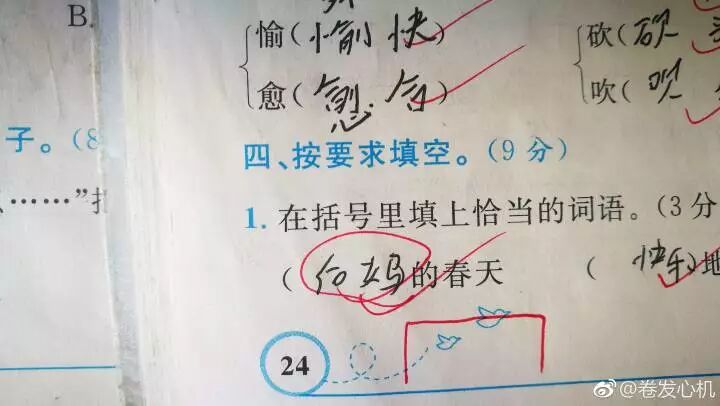 B.
愉(愉快)
砍(砍
愈(愈合)
吹(吹
子。(8
四、按要求填空。(9分)
……”
1. 在括号里填上恰当的词语。(3分
(給妈的春天 (快乐)地
24
@卷发心机